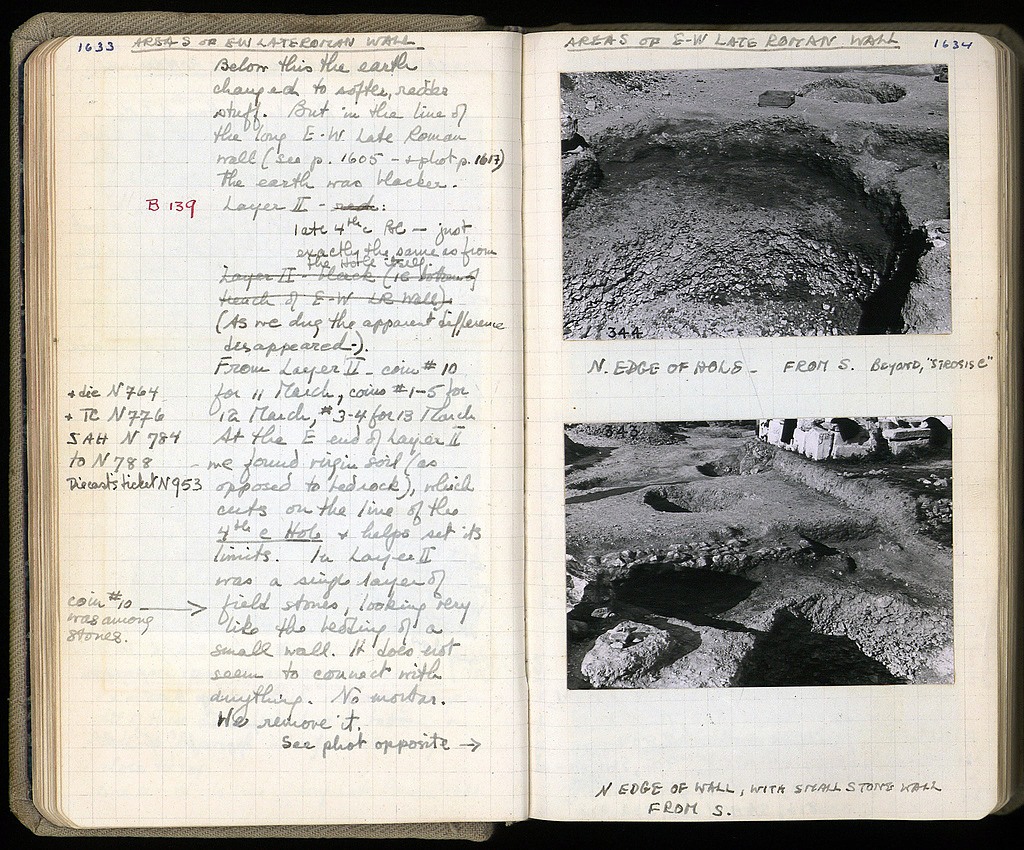 1633 AREAS OF E-W LATE ROMAN WALL
Below this the earth
changed to softer, redder
stuff. But in the line of
the long E-W Late Roman
wall (see p. 1605 - + phot p. 1617)
the earth was blacker.
B 139 Layer II - red:
late 4th c Pot - just
exactly the same as from
the Hole itself.
Layer II - black (ie bottom of
trench of E-W LR Wall)
(As we dug the apparent difference
disappeared -).
From Layer II - coin #10
+ die N 764 for 11 March, coins #1-5 for
+ TC N 776 12 March, #3-4 for 13 March
SAH N 784 At the E end of Layer II
to N 788 - we found virgin soil (as
Diecasts ticket N 953 opposed to bedrock), which
cuts on the line of the
4th c Hole + helps set its
limits. In Layer II
was a single layer of
coin #10 → field stones, looking very
was among like the bedding of a
stones. small wall. It does not
seem to connect with
anything. No mortar.
We remove it.
See phot opposite →
AREAS OF E-W LATE ROMAN WALL 1634
344
N. EDGE OF HOLE - FROM S. Beyond,
N EDGE OF WALL, WITH SMALL STONE WALL
FROM S.